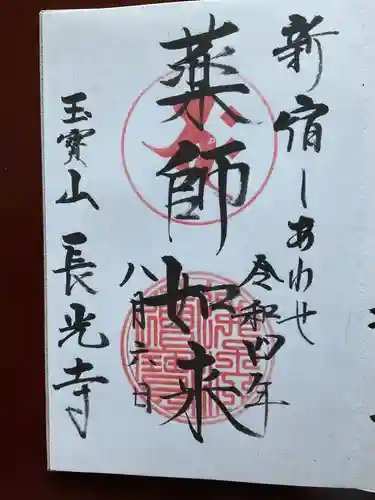 新宿しあわせ
令和四年
薬師如来
八月六日
玉寶山
長光寺